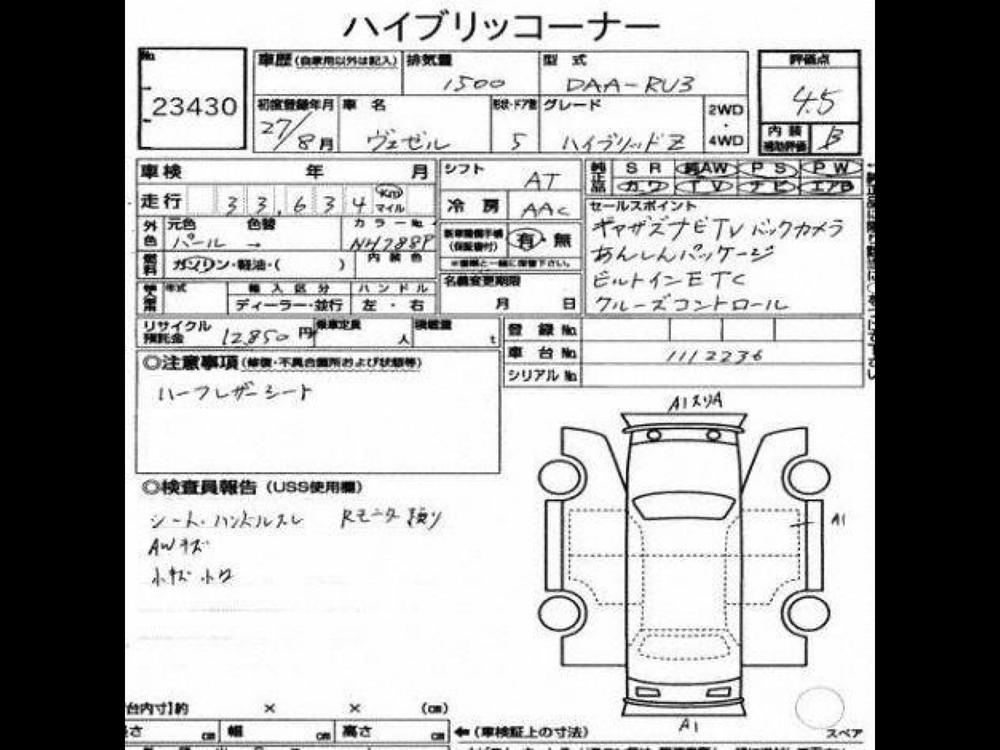 ハイブリッコーナー
No
23430
車歴(自家用以外は記入) 排気量 1500 型式 DAA-RU3
評価点 4.5
初度登録年月 27/8月 車名 ヴェゼル 形状・ドア数 5 グレード ハイブリッドZ 2WD・4WD
内装補助評価 B
車検 年 月
シフト AT
純正品 SR 純AW PS PW
カワ TV ナビ エアB
走行 33,634 km マイル
冷房 AAC
セールスポイント
ギャザズナビTV バックカメラ
あんしんパッケージ
ビルトインETC
クルーズコントロール
外色 元色 パール 色替 → カラーNo. NH788P
(保証書付) 有・無
燃料 ガソリン・軽油・( ) 内装色
名義変更期限 月 日
年式 輸入区分 ディーラー・並行 ハンドル 左・右
リサイクル預託金 12,850円 乗車定員 人 積載量 t
登録No.
車台No. 1112236
シリアルNo.
◎注意事項(修復・不具合箇所および状態等)
ハーフレザーシート
◎検査員報告(USS使用欄)
シート・ハンドルスレ Rモニタ
AWキズ
小キズ
A1スリA
A1
A1
スペア
台内寸】約 × × (cm)
さ cm 幅 cm 高さ cm ←(車検証上の寸法)